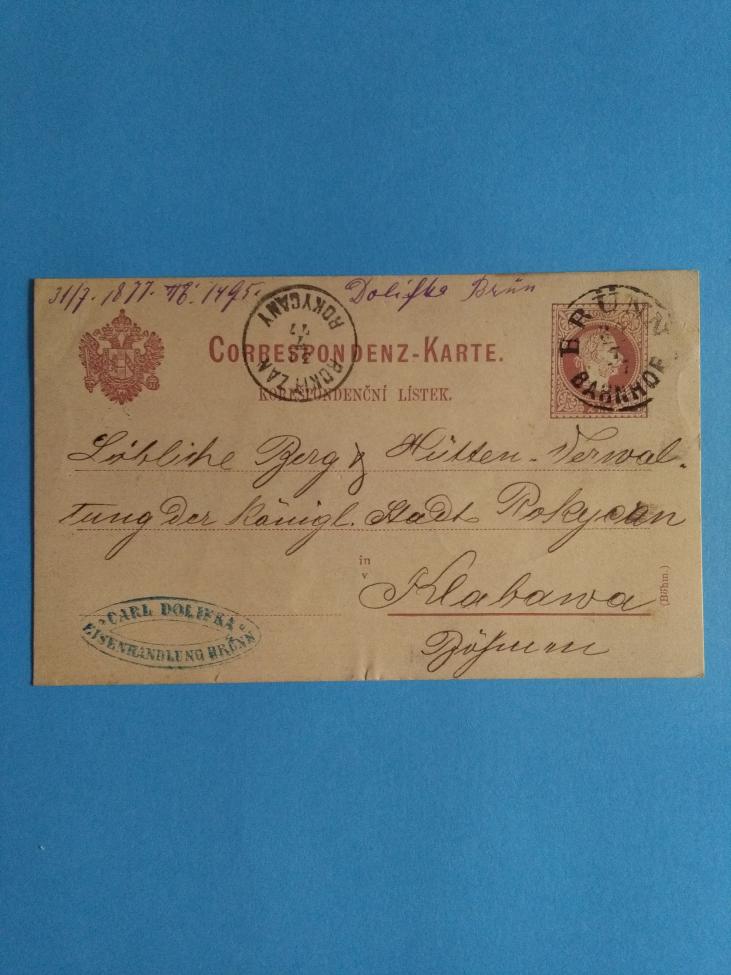 31/7. 1877. 1495. Dolifka Brün
BRÜNN
BAHNHOF
ROKITZAN
ROKYCANY
CORRESPONDENZ-KARTE.
KORESPONDENČNÍ LÍSTEK.
Löbliche Berg & Hütten-Verwal-
tung der königl. Stadt Rokycan
in
v
Klabawa
(Böhm.)
Böhmen
CARL DOLIFKA
EISENHANDLUNG BRÜNN